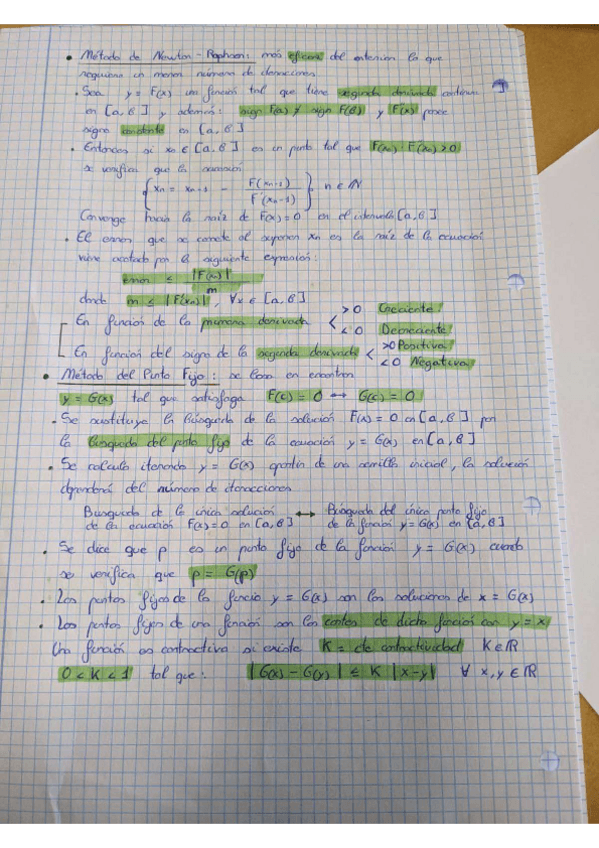 • Método de Newton-Raphson: más eficaz del anterior lo que
requiere un menor número de iteracciones
• Sea y = F(x) una función tal que tiene segunda derivada continua
en [a, b] y además: sign F(a) ≠ sign F(b) y F(x) posee
signo constante en [a, b]
• Entonces si x₀ ∈ [a, b] es un punto tal que F(x₀) · F(x₀) > 0
se verifica que la sucesión
{ xn = xn-1 - F(xn-1) / F'(xn-1) } n ∈ ℕ
Converge hacia la raíz de F(x) = 0 en el intervalo [a, b]
• El error que se comete al suponer xn es la raíz de la ecuación
viene acotado por la siguiente expresión:
error ≤ |F(xn)| / m
donde m ≤ |F(xn)|, ∀x ∈ [a, b]
En función de la primera derivada < >0 Creciente
<0 Decreciente
En función del signo de la segunda derivada < >0 Positiva
<0 Negativa
• Método del Punto Fijo: se basa en encontrar
y = G(x) tal que satisfaga F(c) = 0 ↔ G(c) = 0
• Se sustituye la búsqueda de la solución F(x) = 0 en [a, b] por
la búsqueda del punto fijo de la ecuación y = G(x) en [a, b]
• Se calcula iterando y = G(x) apartir de una semilla inicial, la solución
dependerá del número de iteracciones
Busqueda de la única solución ↔ Búsqueda del único punto fijo
de la ecuación F(x) = 0 en [a, b] de la función y = G(x) en [a, b]
• Se dice que p es un punto fijo de la función y = G(x) cuando
se verifica que p = G(p)
• Los puntos fijos de la funcio y = G(x) son las soluciones de x = G(x)
• Los puntos fijos de una función son los cortes de dicha función con y = x
Una función es contractiva si existe K = cte de contractividad K ∈ ℝ
0 < K < 1 tal que: |G(x) - G(y)| ≤ K |x-y| ∀ x, y ∈ ℝ